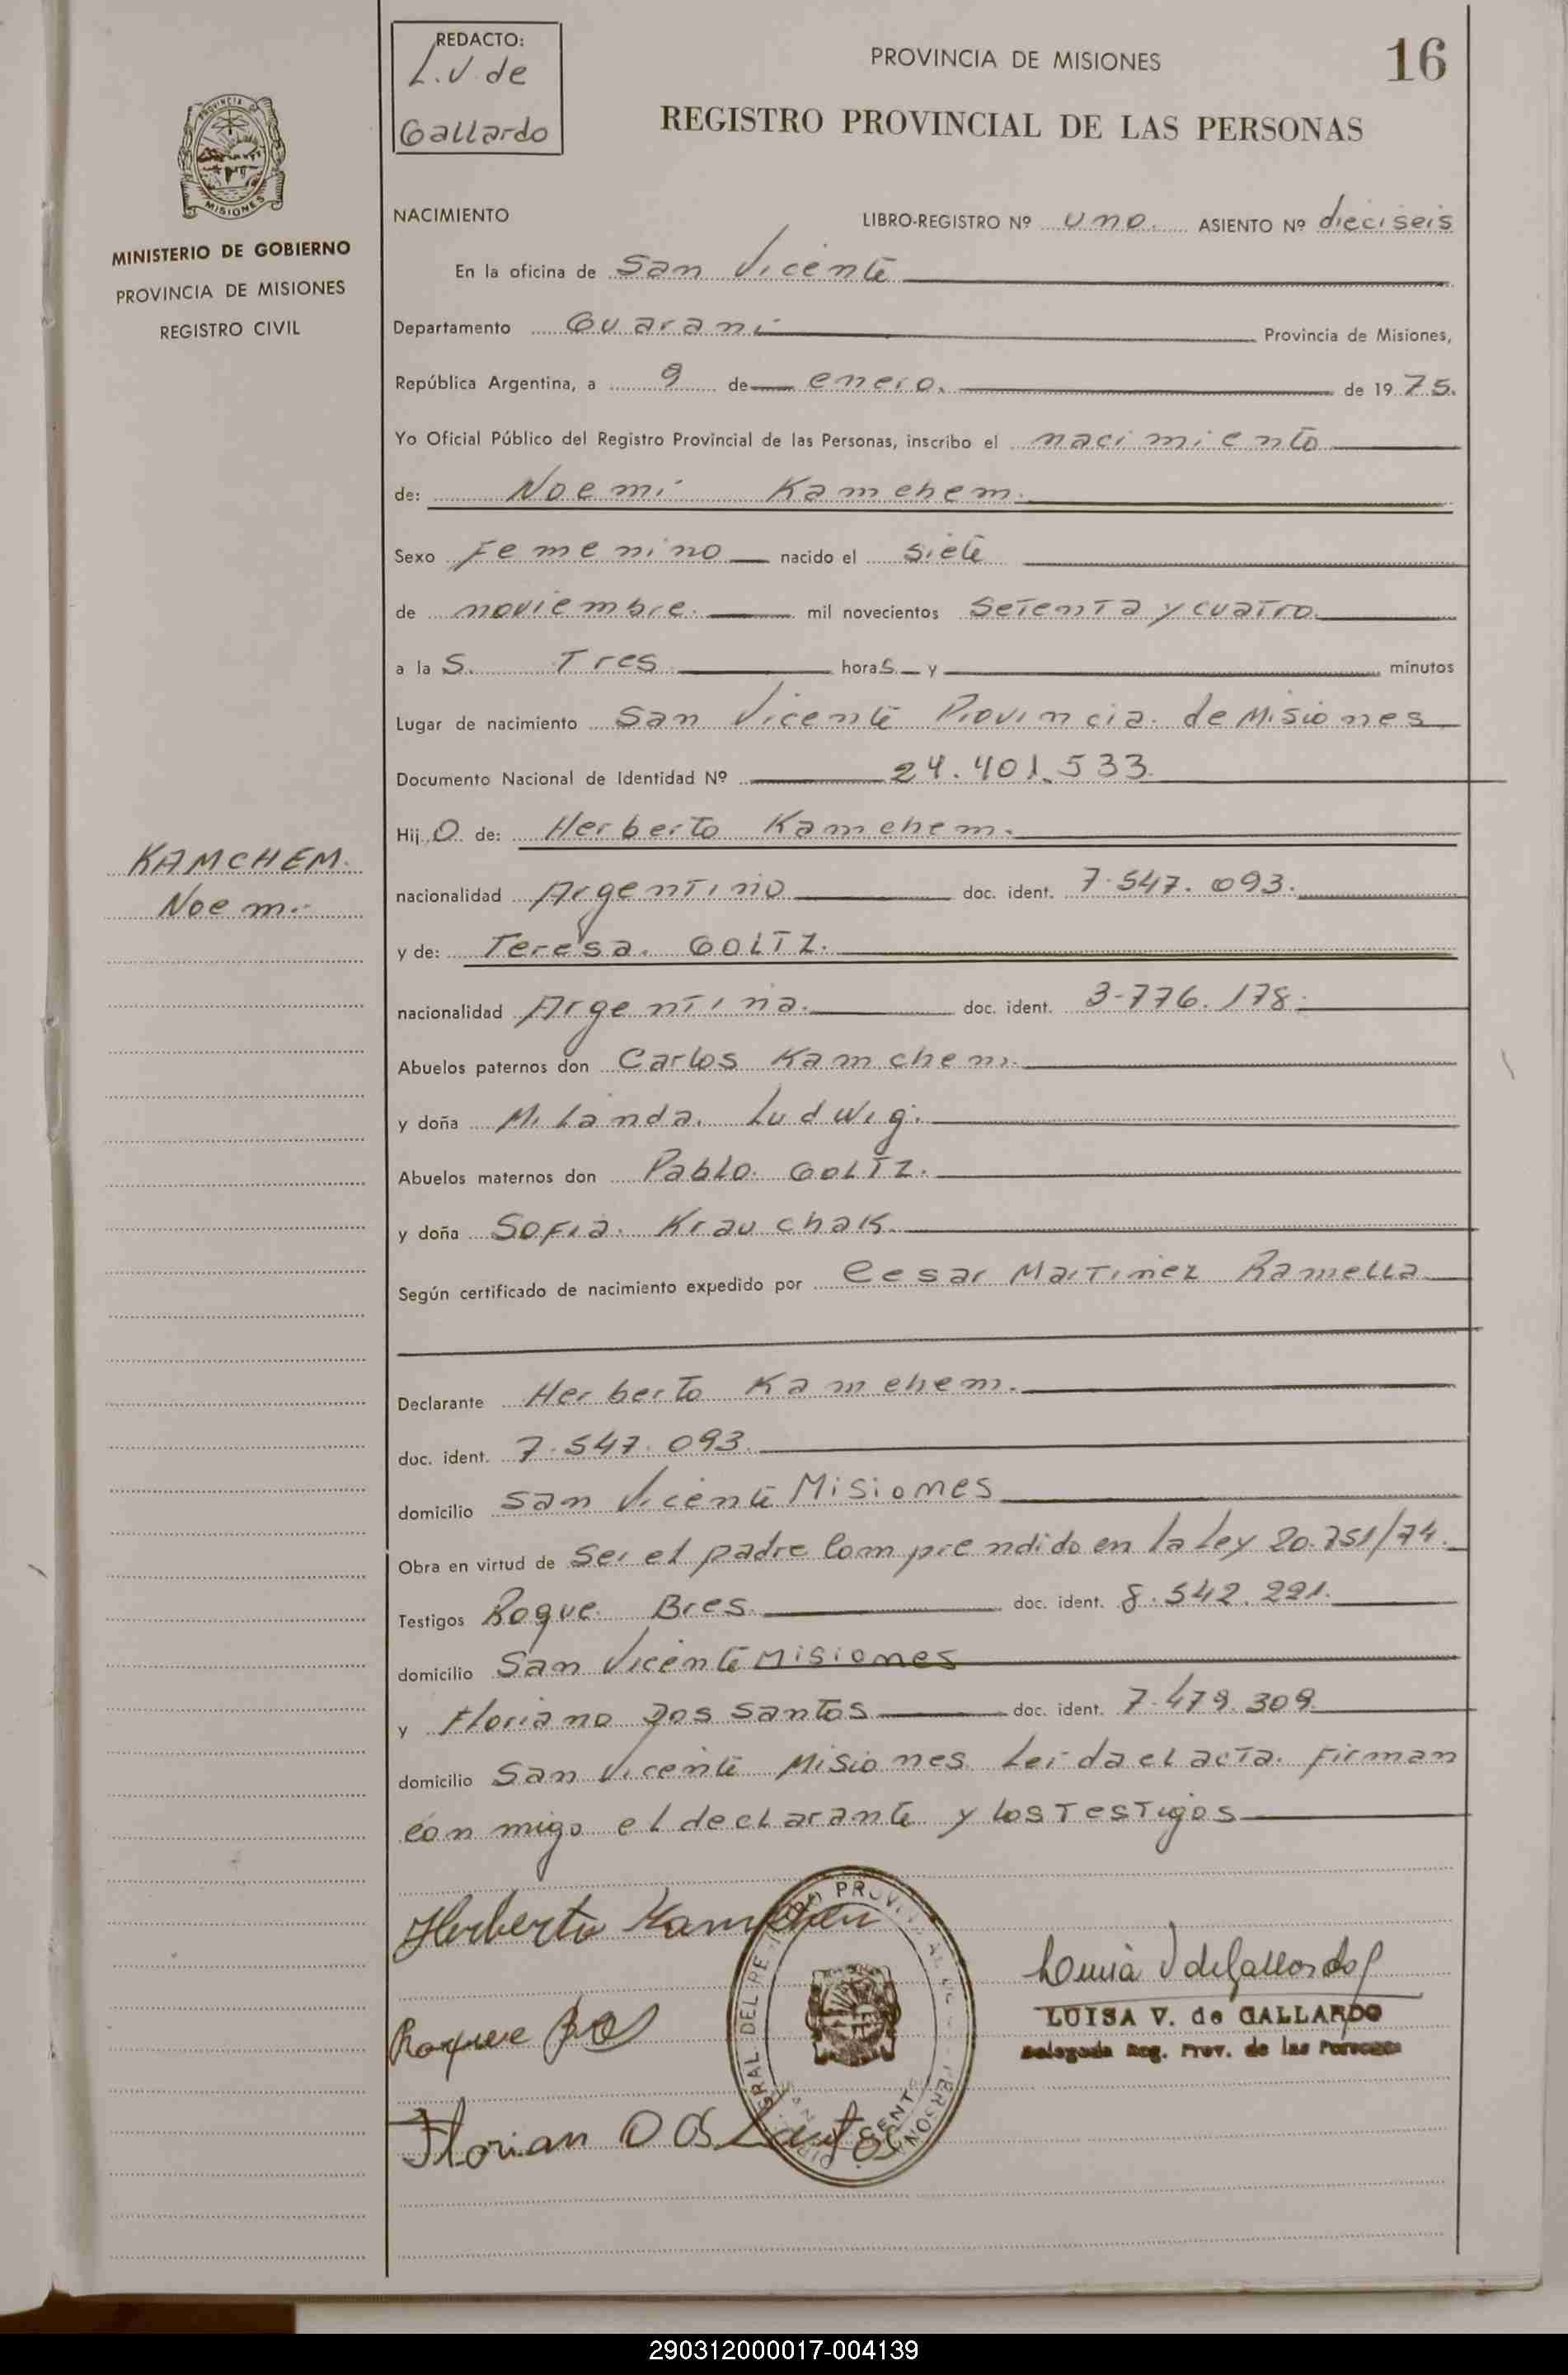 REDACTO:
L.V. de
Gallardo
PROVINCIA DE MISIONES
16
REGISTRO PROVINCIAL DE LAS PERSONAS
PROVINCIA DE
MISIONES
MINISTERIO DE GOBIERNO
PROVINCIA DE MISIONES
REGISTRO CIVIL
NACIMIENTO LIBRO-REGISTRO Nº uno. ASIENTO Nº dieciseis
En la oficina de San Vicente
Departamento Guarani Provincia de Misiones,
República Argentina, a 9 de enero. de 1975.
Yo Oficial Público del Registro Provincial de las Personas, inscribo el nacimiento
de: Noemi Kamchem.
Sexo Femenino nacido el siete
de noviembre. mil novecientos Setenta y cuatro.
a las. Tres horas y minutos
Lugar de nacimiento San Vicente Provincia de Misiones
Documento Nacional de Identidad Nº 24.401.533.
Hijo de: Herberto Kamchem.
KAMCHEM.
Noemi
nacionalidad Argentino doc. ident. 7.547.093.
y de: Teresa. GOLTZ.
nacionalidad Argentina. doc. ident. 3-776.178.
Abuelos paternos don Carlos Kamchem.
y doña Milanda. Ludwig.
Abuelos maternos don Pablo. GOLTZ.
y doña Sofia. Krauchak.
Según certificado de nacimiento expedido por Cesar Martinez Ramella
Declarante Herberto Kamchem.
doc. ident. 7.547.093.
domicilio San Vicente Misiones
Obra en virtud de Ser el padre Comprendido en la Ley 20.751/74.
Testigos Roque Bres. doc. ident. 8.542.221.
domicilio San Vicente Misiones
y Floriano Dos Santos doc. ident. 7.479.309.
domicilio San Vicente Misiones Leida el acta. Firman
conmigo el declarante y los Testigos
Herberto Kamchen
Roque
Florian DOS Santos
LUISA V. de GALLARDO
Delegada Reg. Prov. de las Personas
290312000017-004139